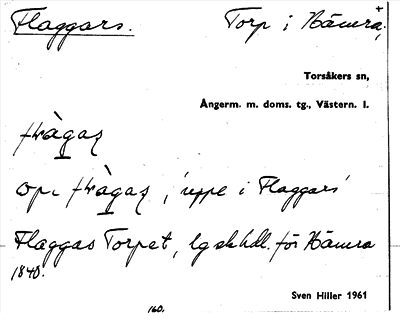 Flaggars. Torp i Hämra,
Torsåkers sn,
Ångerm. m. doms. tg., Västern. l.
flàgas
op. flàgas, 'uppe i Flaggars'
Flaggas Torpet, lgskhdl. för Hämra
1840.
Sven Hiller 1961
160.